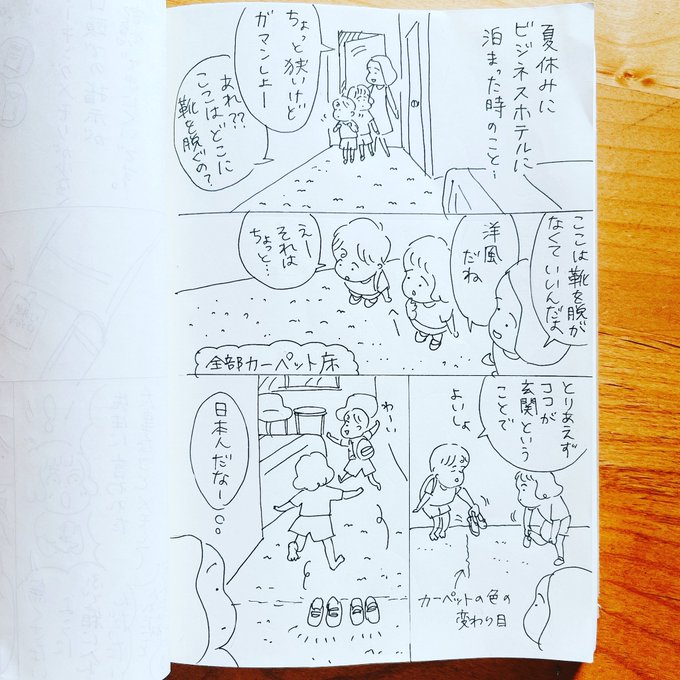 夏休みに
ビジネスホテルに
泊まった時のこと…
ちょっと狭いけど
ガマンしよー
あれ??
ここはどこに
靴を脱ぐの?
ここは靴を脱が
なくていいんだよ
洋風
だね
えー
それは
ちょっと…
全部カーペット床
とりあえず
ココが
玄関という
ことで
よいしょ
カーペットの色の
変わり目
わーい
日本人だなー